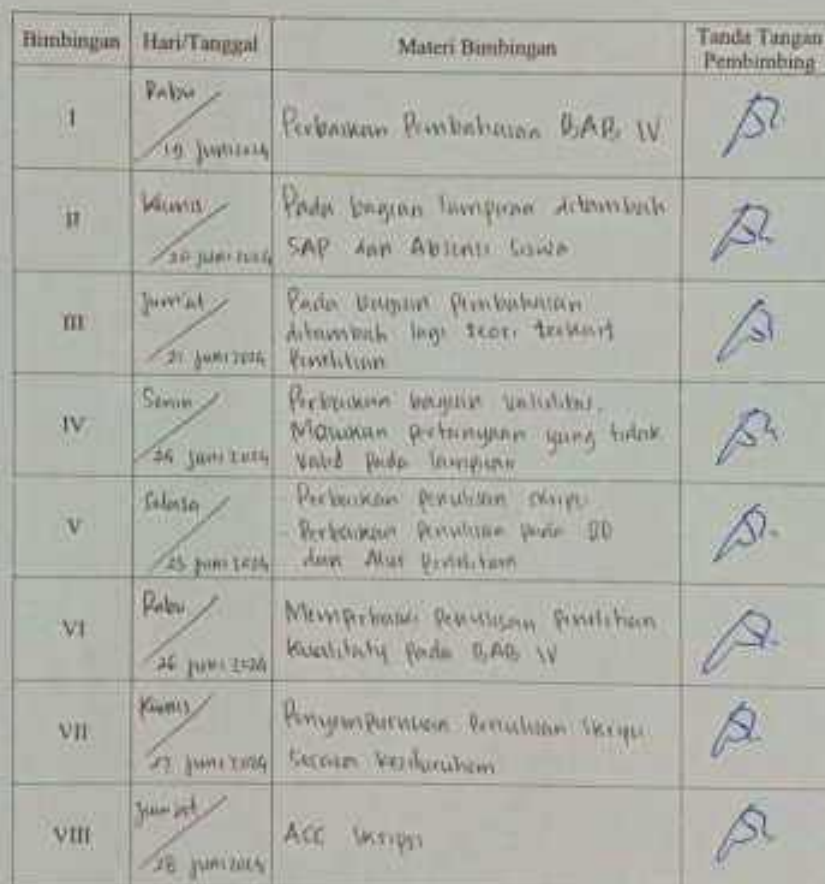 Bimbingan Hari/Tanggal Materi Bimbingan Tanda Tangan
Pembimbing
I Rabu
19 Juni 2024 Perbaikan Pembahasan BAB IV
II Kamis
20 Juni 2024 Pada bagian lampiran ditambah
SAP dan Absensi Siswa
III Jum'at
21 Juni 2024 Pada bagian pembahasan
ditambah lagi teori terkait
Penelitian
IV Senin
24 Juni 2024 Perbaikan bagian validitas.
Masukan pertanyaan yang tidak
valid pada lampiran
V Selasa
25 Juni 2024 - Perbaikan penulisan skripsi
- Perbaikan Penulisan pada DO
dan Alur Penelitian
VI Rabu
26 Juni 2024 Memperbaiki Penulisan Penelitian
Kualitatif pada BAB IV
VII Kamis
27 Juni 2024 Penyempurnaan Penulisan skripsi
secara keseluruhan
VIII Jum'at
28 Juni 2024 ACC Skripsi